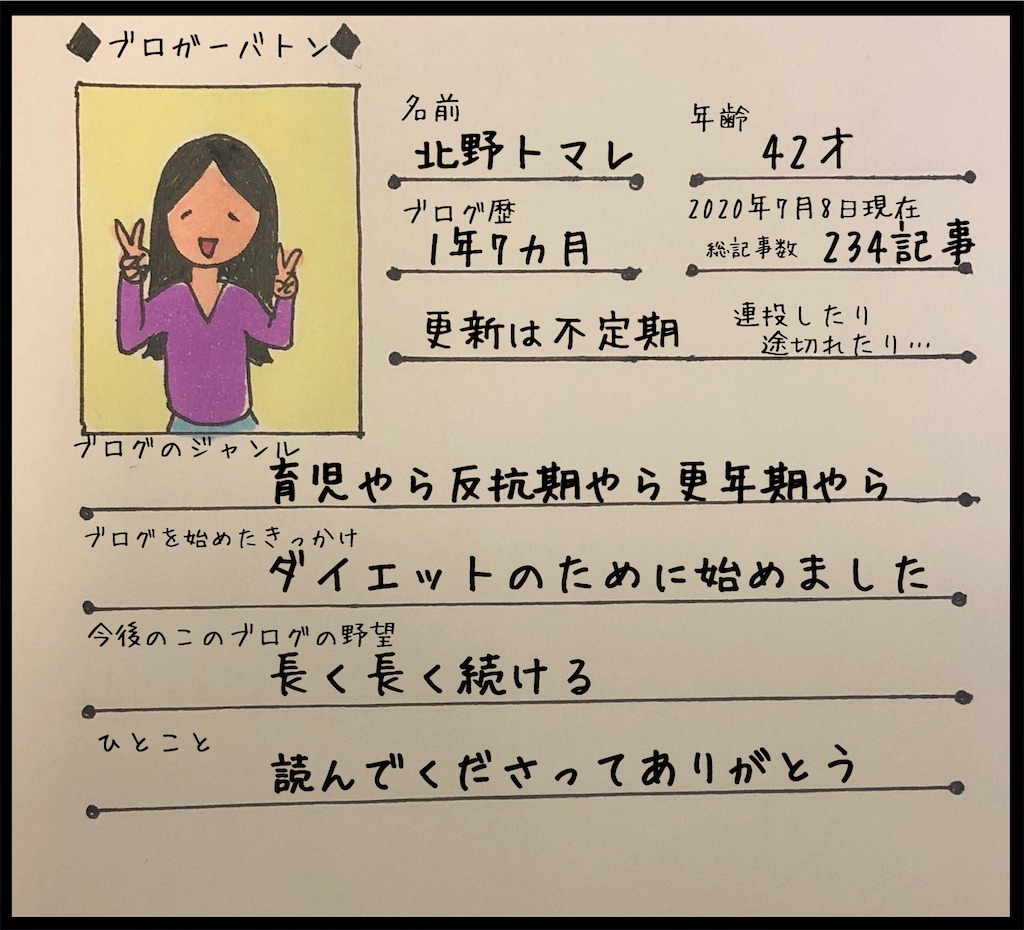 ◆ブロガーバトン◆
名前
北野トマレ
年齢
42才
ブログ歴
1年7カ月
2020年7月8日現在
総記事数 234記事
更新は不定期
連投したり
途切れたり…
ブログのジャンル
育児やら反抗期やら更年期やら
ブログを始めたきっかけ
ダイエットのために始めました
今後のこのブログの野望
長く長く続ける
ひとこと
読んでくださってありがとう